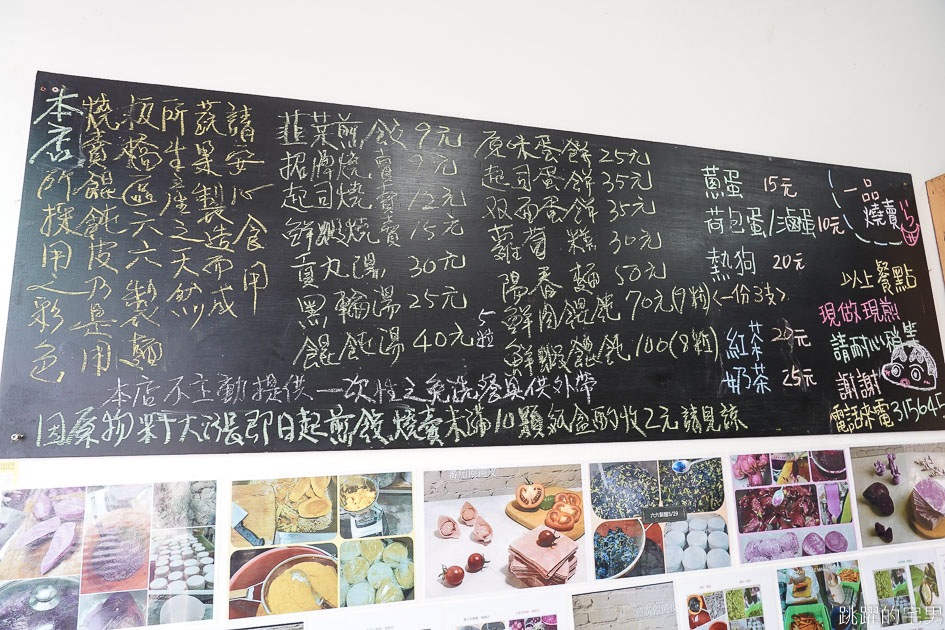 本店所採用之彩色
燒賣餛飩皮乃是用
板橋區六六製麵
所生產之天然
蔬果製造而成
請安心食用
韮菜煎餃 9元
招牌燒賣 9元
起司燒賣 12元
鮮蝦燒賣 15元
貢丸湯 30元
黑輪湯 25元
餛飩湯 40元 5粒
原味蛋餅 25元
起司蛋餅 35元
双面蛋餅 35元
蘿蔔糕 30元
陽春麵 50元
鮮肉餛飩 70元(9粒)
鮮蝦餛飩 100(8粒)
蔥蛋 15元
荷包蛋/滷蛋 10元
熱狗 20元
<一份3支>
紅茶 20元
奶茶 25元
一品
燒賣
以上餐點
現做現煎
請耐心稍等
謝謝
電話來電 315645
本店不主動提供一次性之免洗餐具供外帶
因原物料大漲即日起煎餃燒賣未滿10顆紙盒酌收2元請見諒
六六製麵5/29
跳躍的宅男